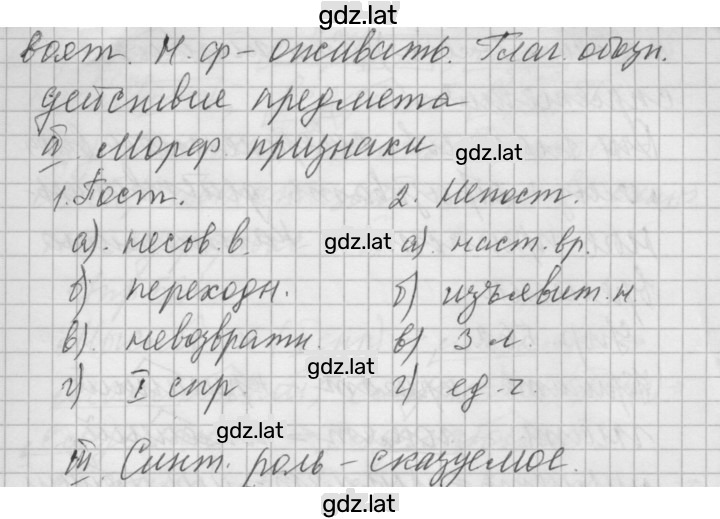 gdz.lat
вает. Н.ф – оживать. Глаг. обозн.
действие предмета
II. Морф. признаки gdz.lat
1. Пост. 2. Непост.
а). несов. в. gdz.lat а). наст. вр.
б) переходн. б) изъявит. н.
в). невозвратн. в) 3 л.
gdz.lat
г) I спр. г) ед. ч.
gdz.lat
III Синт. роль – сказуемое.
gdz.lat